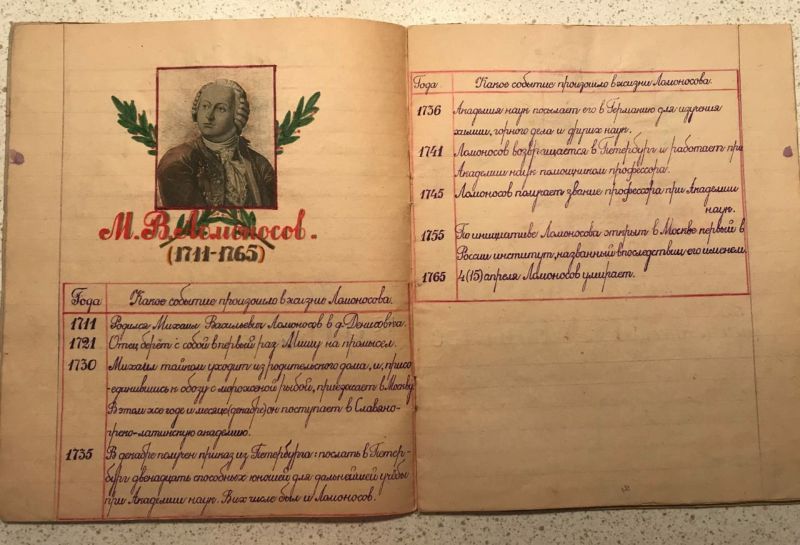 М.В.Ломоносов.
(1711-1765)
Года Какое событие произошло в жизни Ломоносова.
1711 Родился Михаил Васильевич Ломоносов в д. Денисовка.
1721 Отец берёт с собой в первый раз Мишу на промысел.
1730 Михаил тайком уходит из родительского дома, и, присо-
единившись к обозу с мороженой рыбой, приезжает в Москву.
В этом же годе и месяце (декабре) он поступает в Славяно-
греко-латинскую академию.
1735 В декабре получен приказ из Петербурга: послать в Петер-
бург двенадцать способных юношей для дальнейшей учёбы
при Академии наук. В их числе был и Ломоносов.
Года Какое событие произошло в жизни Ломоносова.
1736 Академия наук посылает его в Германию для изучения
химии, горного дела и других наук.
1741 Ломоносов возвращается в Петербург и работает при
Академии наук помощником профессора.
1745 Ломоносов получает звание профессора при Академии
наук.
1755 По инициативе Ломоносова открыт в Москве первый в
России институт, названный впоследствии его именем.
1765 4(15) апреля Ломоносов умирает.